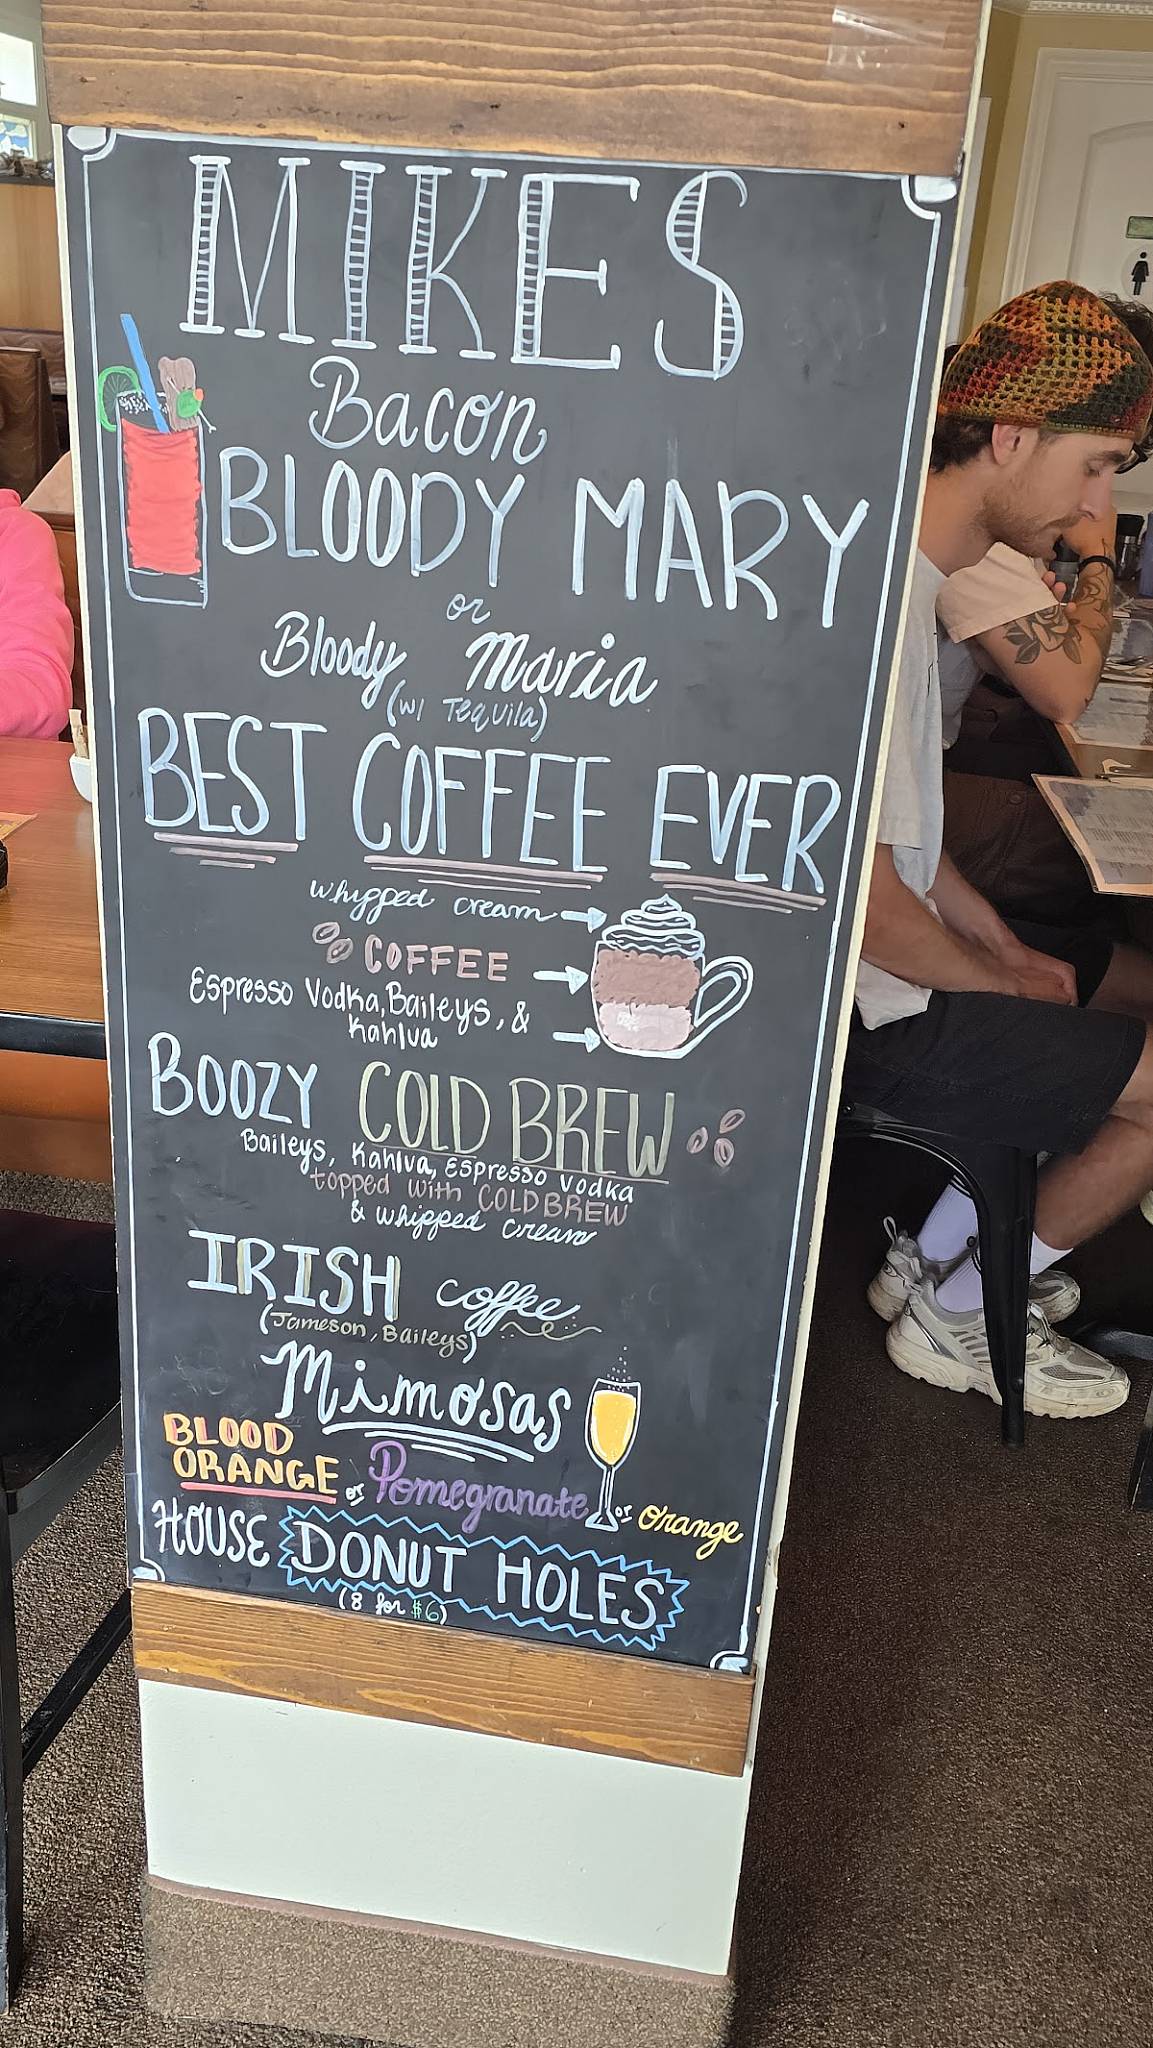 MIKES
Bacon
BLOODY MARY
or
Bloody Maria
(w/ Tequila)
BEST COFFEE EVER
whipped cream
COFFEE
Espresso Vodka, Baileys, &
Kahlua
BOOZY COLD BREW
Baileys, Kahlua, Espresso Vodka
topped with COLD BREW
& whipped cream
IRISH coffee
(Jameson, Baileys)
Mimosas
BLOOD
ORANGE or Pomegranate or orange
HOUSE DONUT HOLES
(8 for $6)